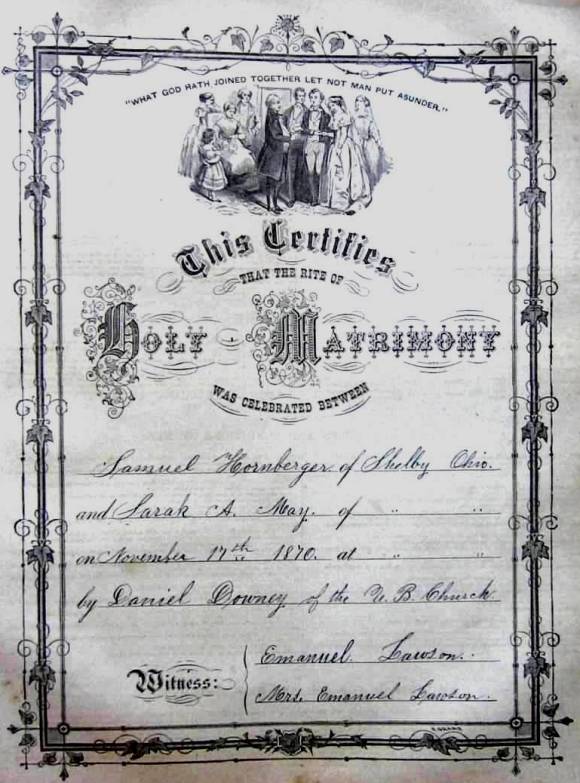 "WHAT GOD HATH JOINED TOGETHER LET NOT MAN PUT ASUNDER."
This Certifies
THAT THE RITE OF
HOLY MATRIMONY
WAS CELEBRATED BETWEEN
Samuel Hornberger of Shelby Ohio.
and Sarah A. May. of " "
on November 17th 1870. at " "
by Daniel Downey of the U. B. Church.
Emanuel Lawson.
Witness:
Mrs. Emanuel Lawson.